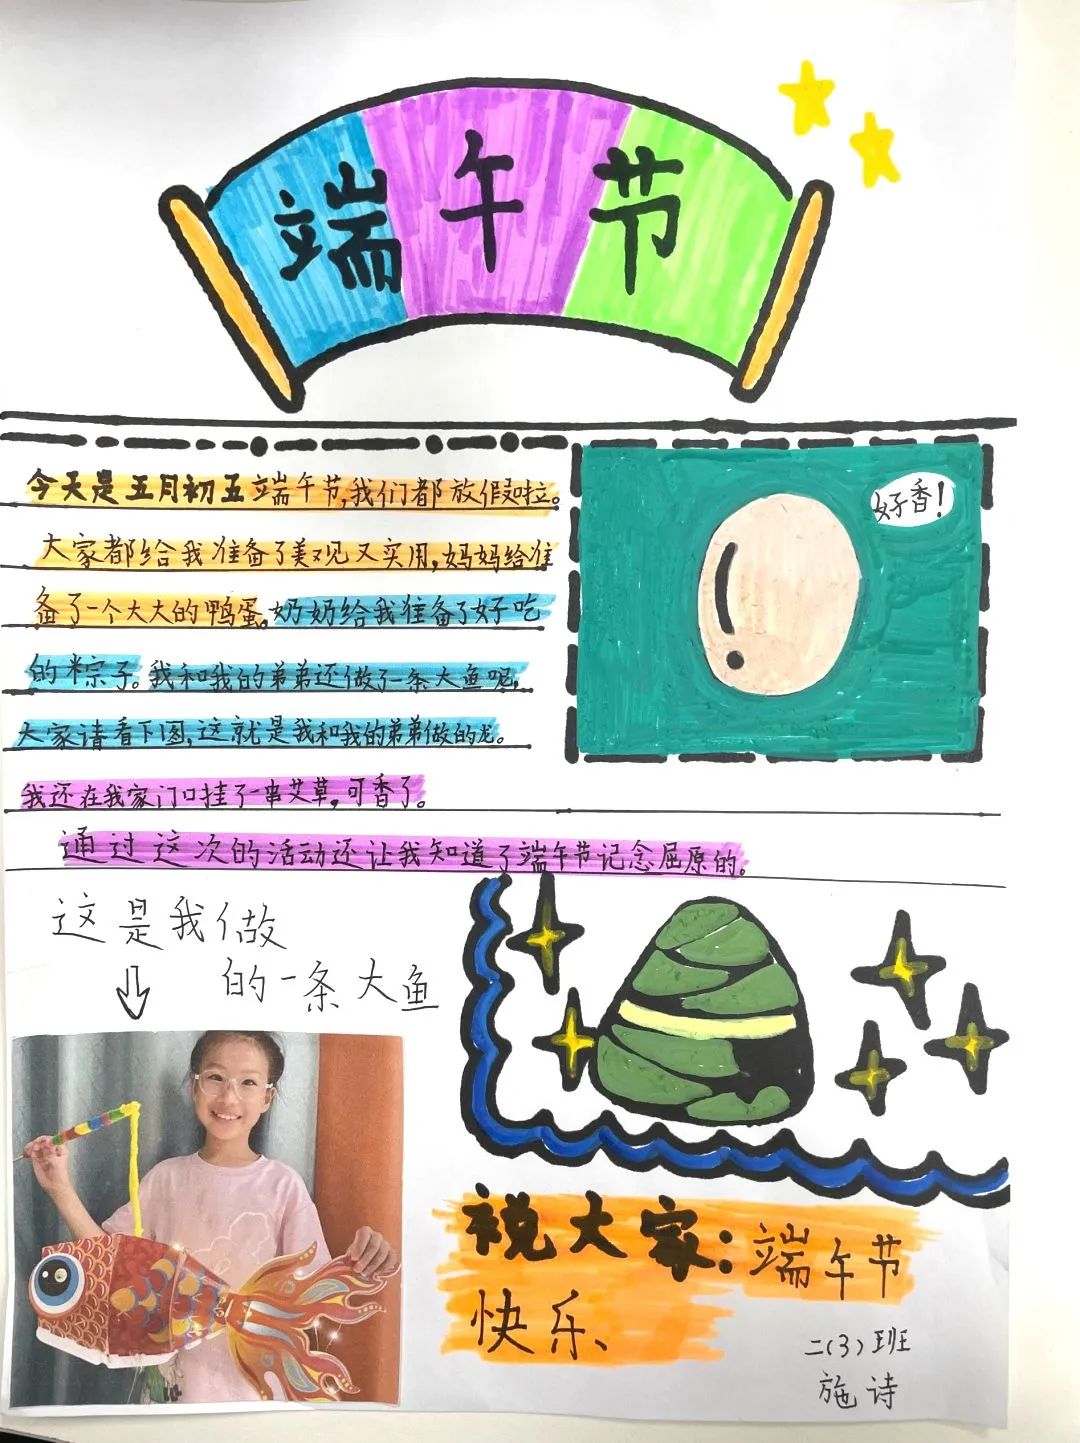 端午节
今天是五月初五端午节,我们都放假啦。
好香!
大家都给我准备了美观又实用,妈妈给准
备了一个大大的鸭蛋,奶奶给我准备了好吃
的粽子。我和我的弟弟还做了一条大鱼呢,
大家请看下图,这就是我和我的弟弟做的龙。
我还在我家门口挂了一串艾草,可香了。
通过这次的活动还让我知道了端午节记念屈原的。
这是我做
的一条大鱼
祝大家:端午节
快乐、
二(3)班
施诗